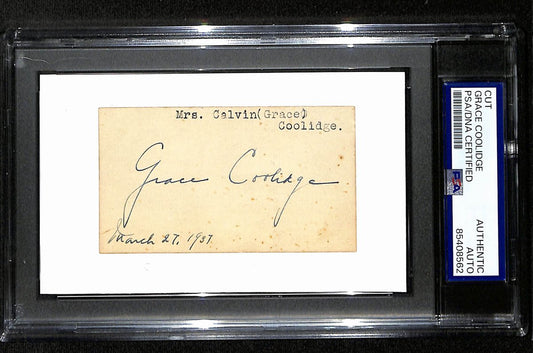 Mrs. Calvin(Grace)
Coolidge.
Grace Coolidge
March 27, 1937.
CUT
GRACE COOLIDGE
PSA/DNA CERTIFIED
PSA
AUTHENTIC
AUTO
85408562